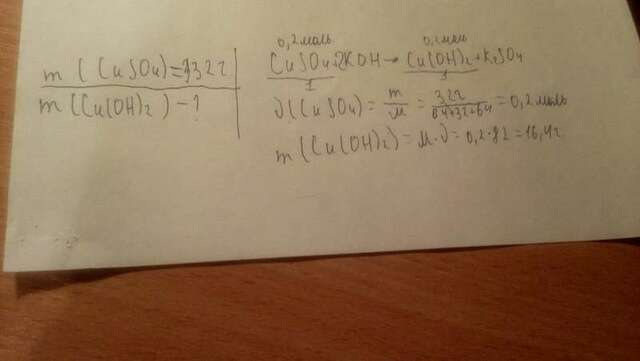 m (CuSO4)=32г
m (Cu(OH)2) - ?
0,2моль 0,2моль
CuSO4+2KOH→Cu(OH)2+K2SO4
1 1
ν(CuSO4)= m/M = 32г/64+32+64 =0,2моль
m(Cu(OH)2)=M·ν=0,2·82=16,4г